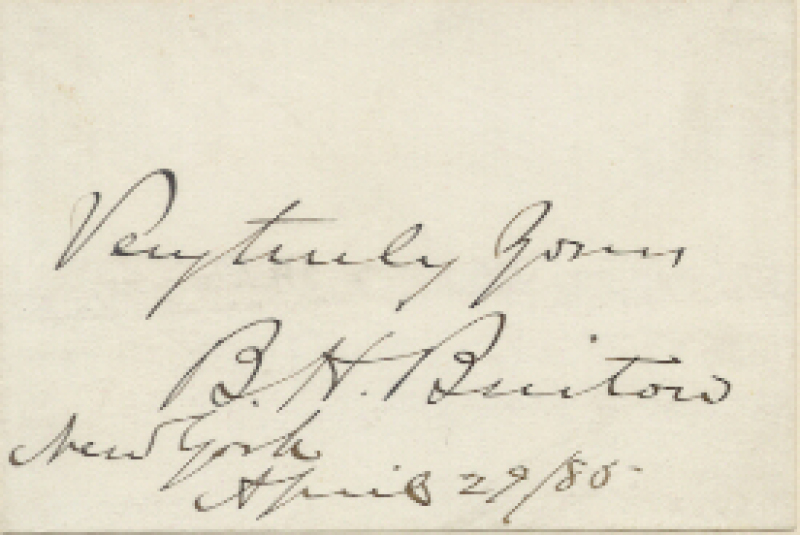 Very truly Yours
B. H. Bristow
New York
April 29/85